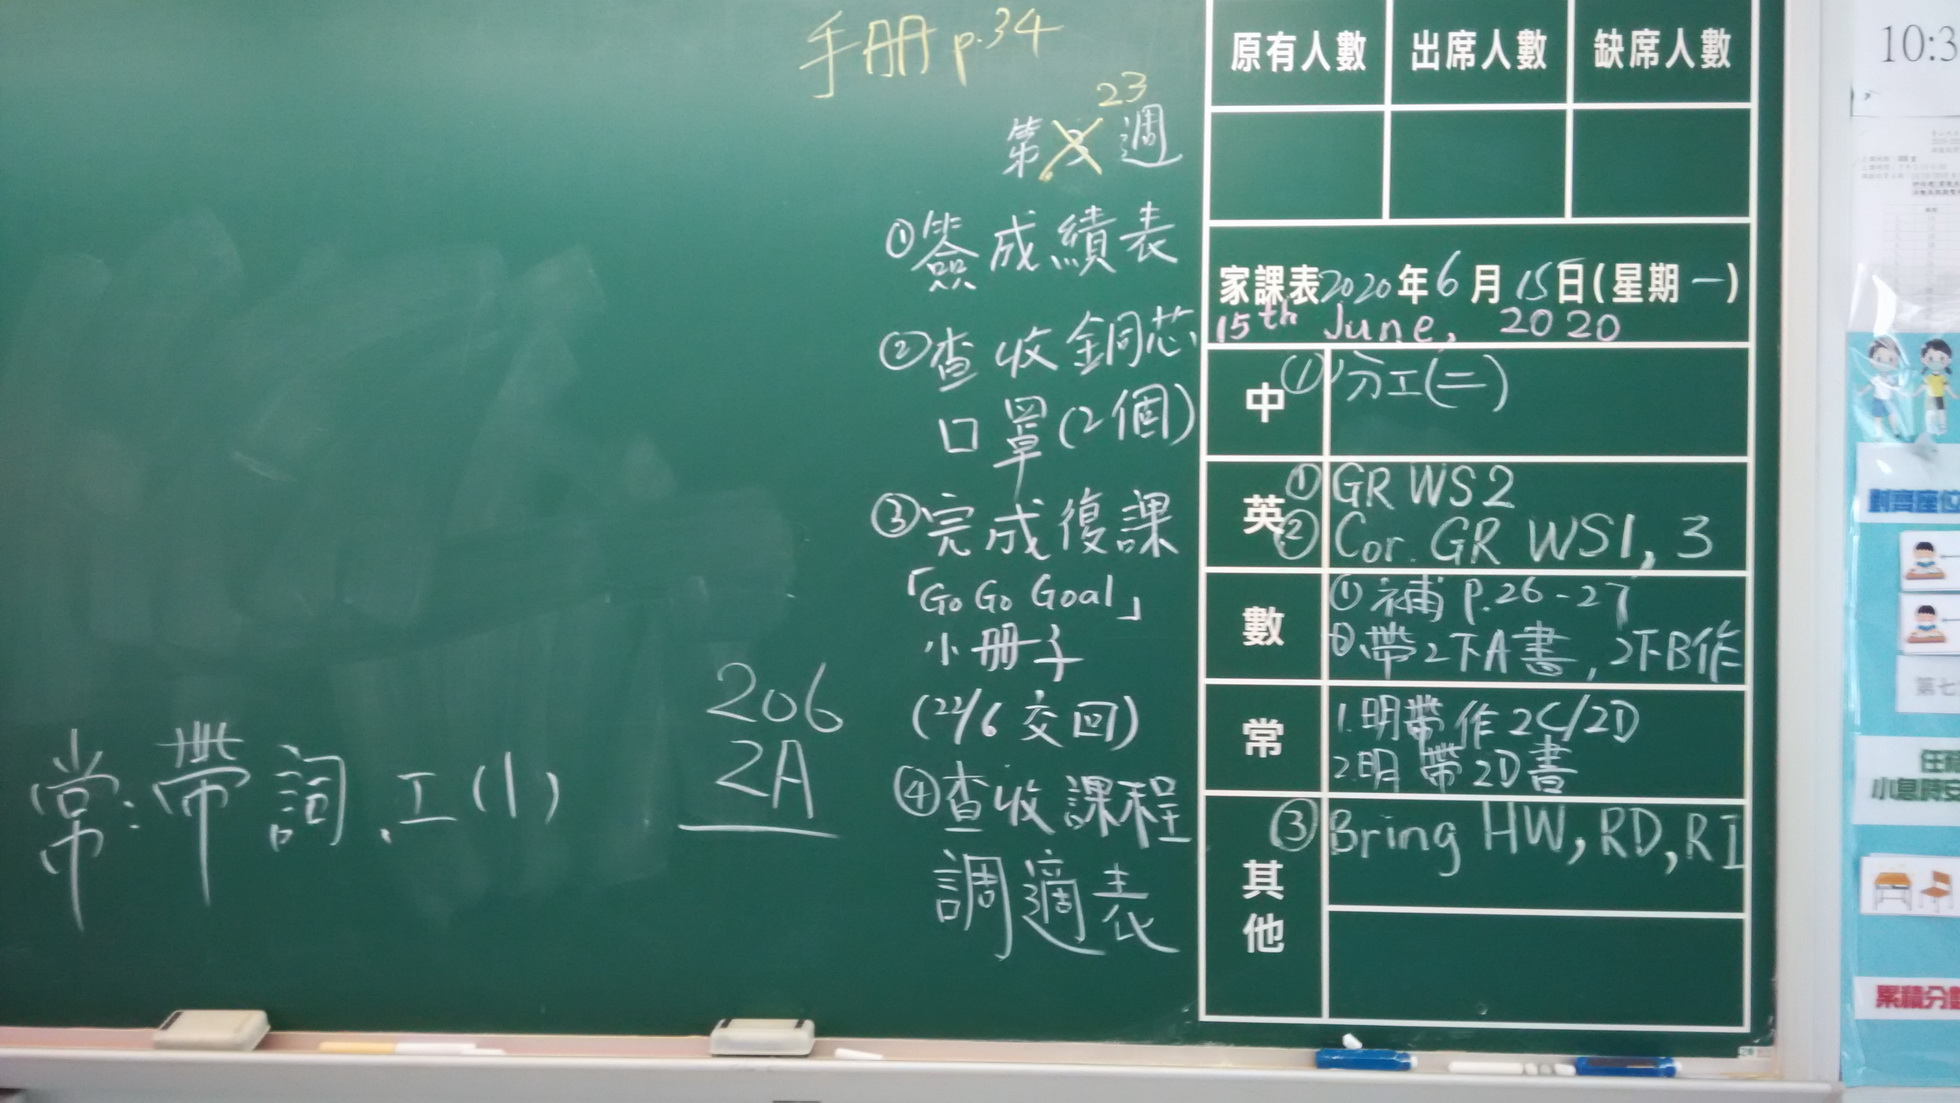 手册 p.34
23
第 週
①簽成績表
②查收銅芯
口罩(2個)
③完成復課
「Go Go Goal」
小册子
(22/6 交回)
④查收課程
調適表
206
2A
常:帶詞.工(1)
原有人數 出席人數 缺席人數
家課表2020年6月15日(星期一)
15th June, 2020
中 ①分工(二)
英 ①GR WS2
②Cor. GR WS1, 3
數 ①補 p.26-27
②帶2下A書, 2下B作
常 1.明帶作2C/2D
2.明帶2D書
其他 ③Bring HW, RD, RI
10:3
第七
小息時
累積分